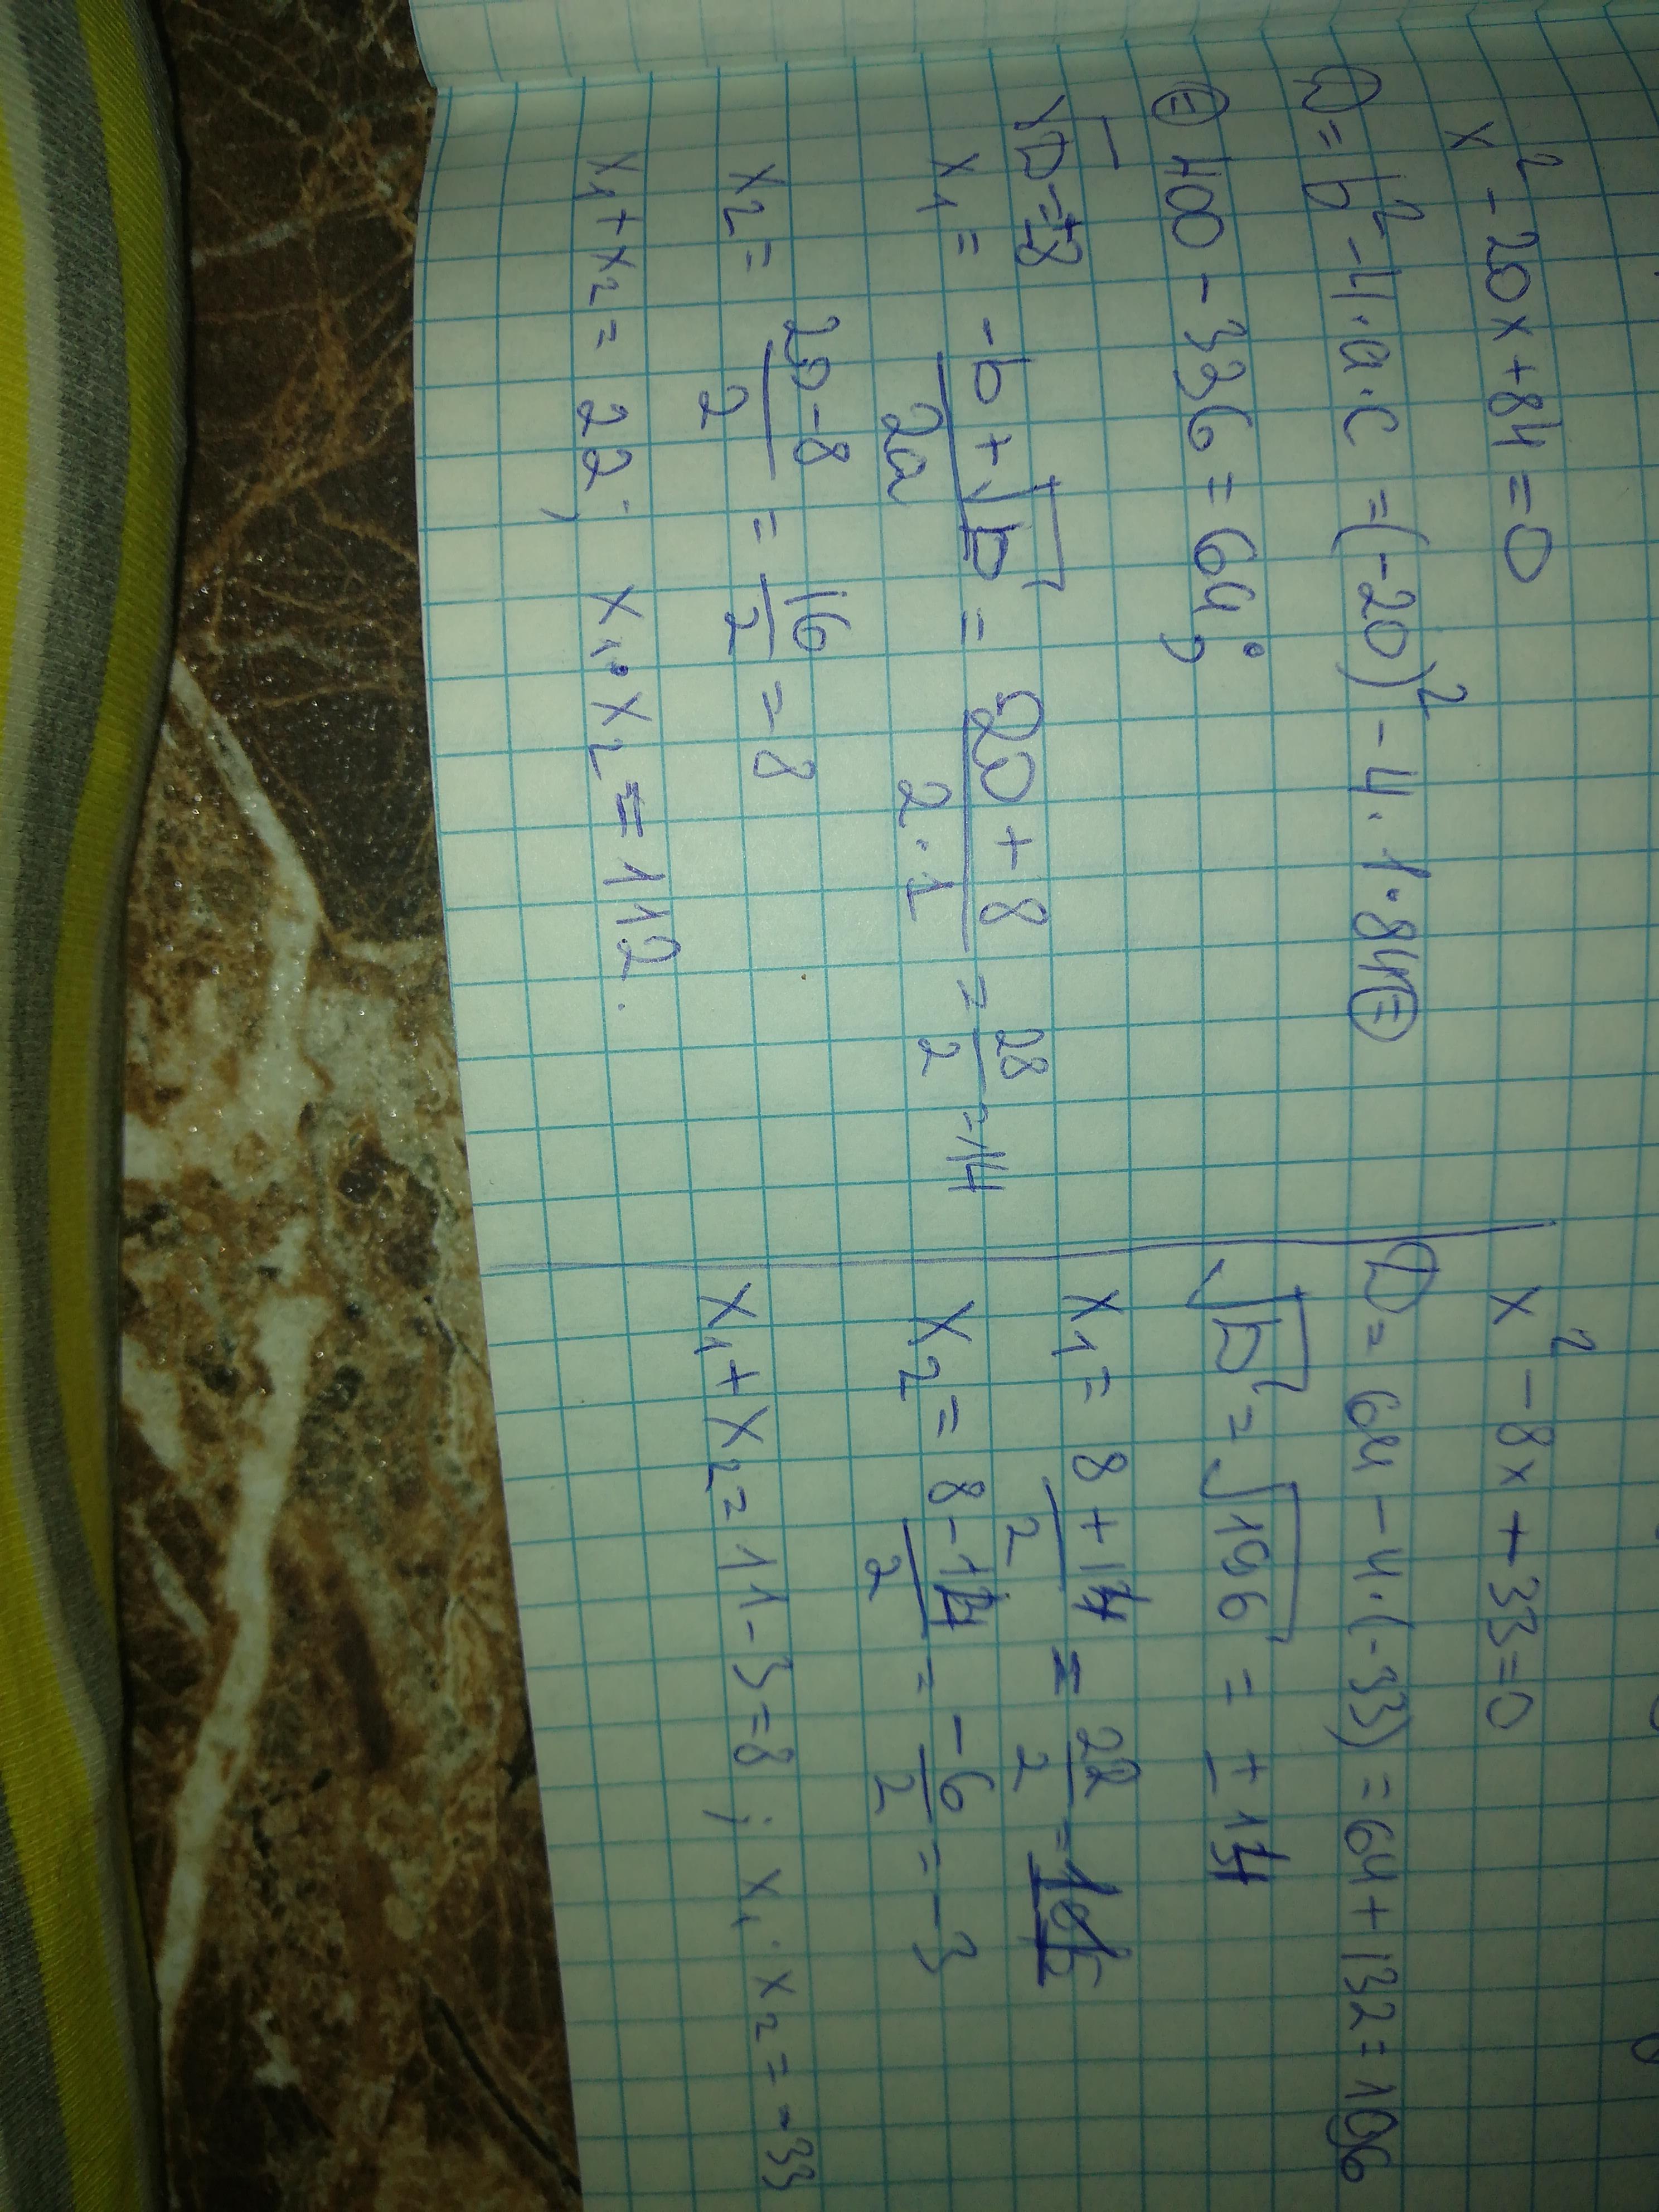 x² - 20x + 84 = 0
D = b² - 4·a·c = (-20)² - 4·1·84 =
= 400 - 336 = 64;
√D = ±8
x₁ = (-b + √D)/2a = (20 + 8)/(2·1) = 28/2 = 14
x₂ = (20 - 8)/2 = 16/2 = 8
x₁ + x₂ = 22; x₁·x₂ = 112.
x² - 8x + 33 = 0
D = 64 - 4·(-33) = 64 + 132 = 196
√D = √196 = ±14
x₁ = (8 + 14)/2 = 22/2 =
x₂ = (8 - 14)/2 = -6/2 = -3
x₁ + x₂ = 11 - 3 = 8; x₁·x₂ = -33